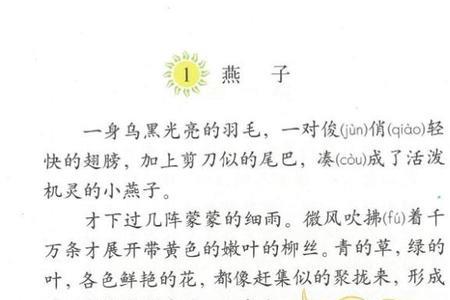 1 燕 子
一身乌黑光亮的羽毛，一对俊(jùn)俏(qiào)轻
快的翅膀，加上剪刀似的尾巴，凑(còu)成了活泼
机灵的小燕子。
才下过几阵蒙蒙的细雨。微风吹拂(fú)着千
万条才展开带黄色的嫩叶的柳丝。青的草，绿的
叶，各色鲜艳的花，都像赶集似的聚拢来，形成